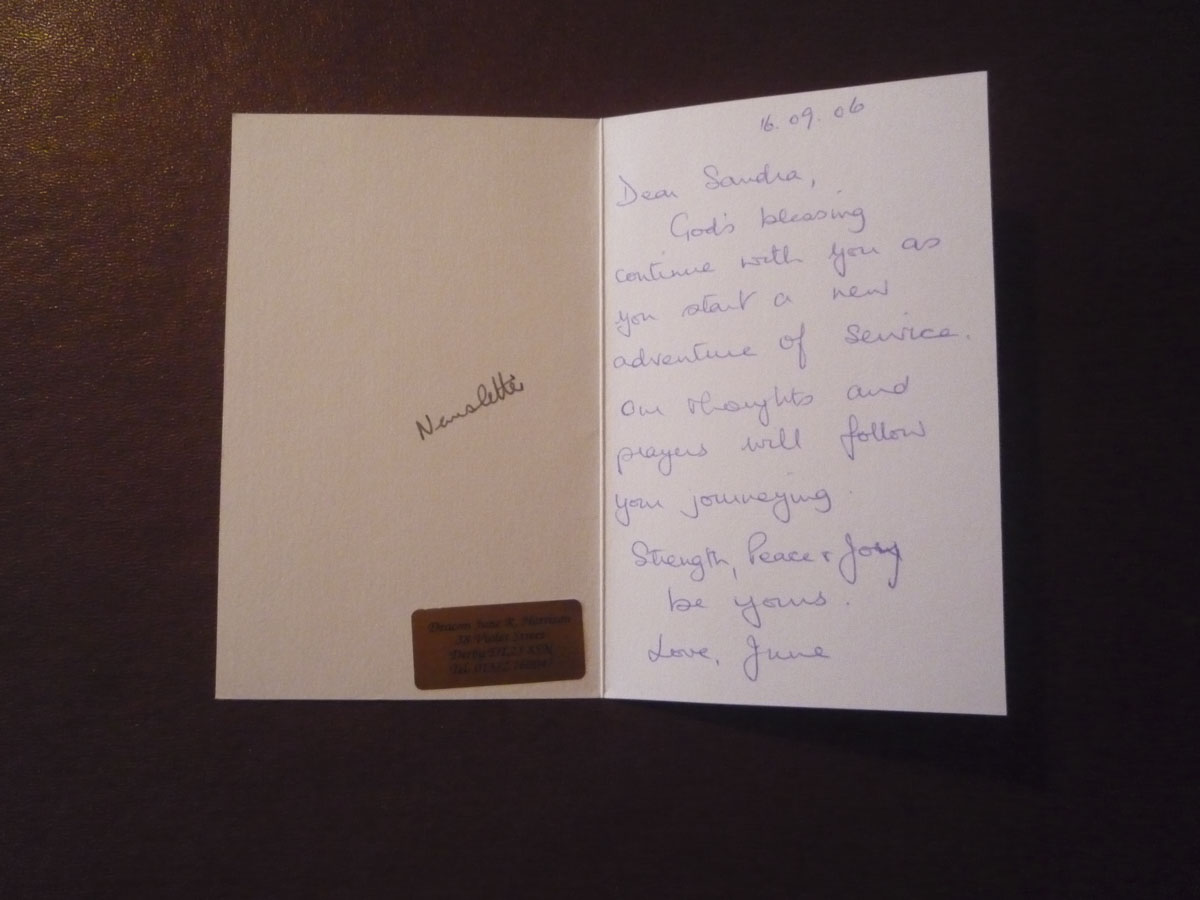 Newsletter
Deacon June R. Harrison
38 Violet Street
Derby
Tel: 01332
16.09.06
Dear Sandra,
God's blessing
continue with you as
you start a new
adventure of Service.
Our thoughts and
prayers will follow
your journeying.
Strength, Peace + Joy
be yours.
Love, June